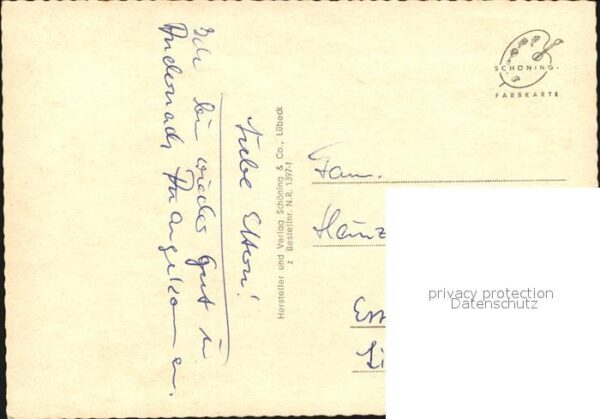 Liebe Eltern!
Ich bin wieder gut in
Andernach angekommen.
Hersteller und Verlag Schöning & Co., Lübeck
Z Bestellnr. N.R. 1397-f
SCHÖNING
FARBKARTE
Fam.
Heinz
Ess
privacy protection
Datenschutz